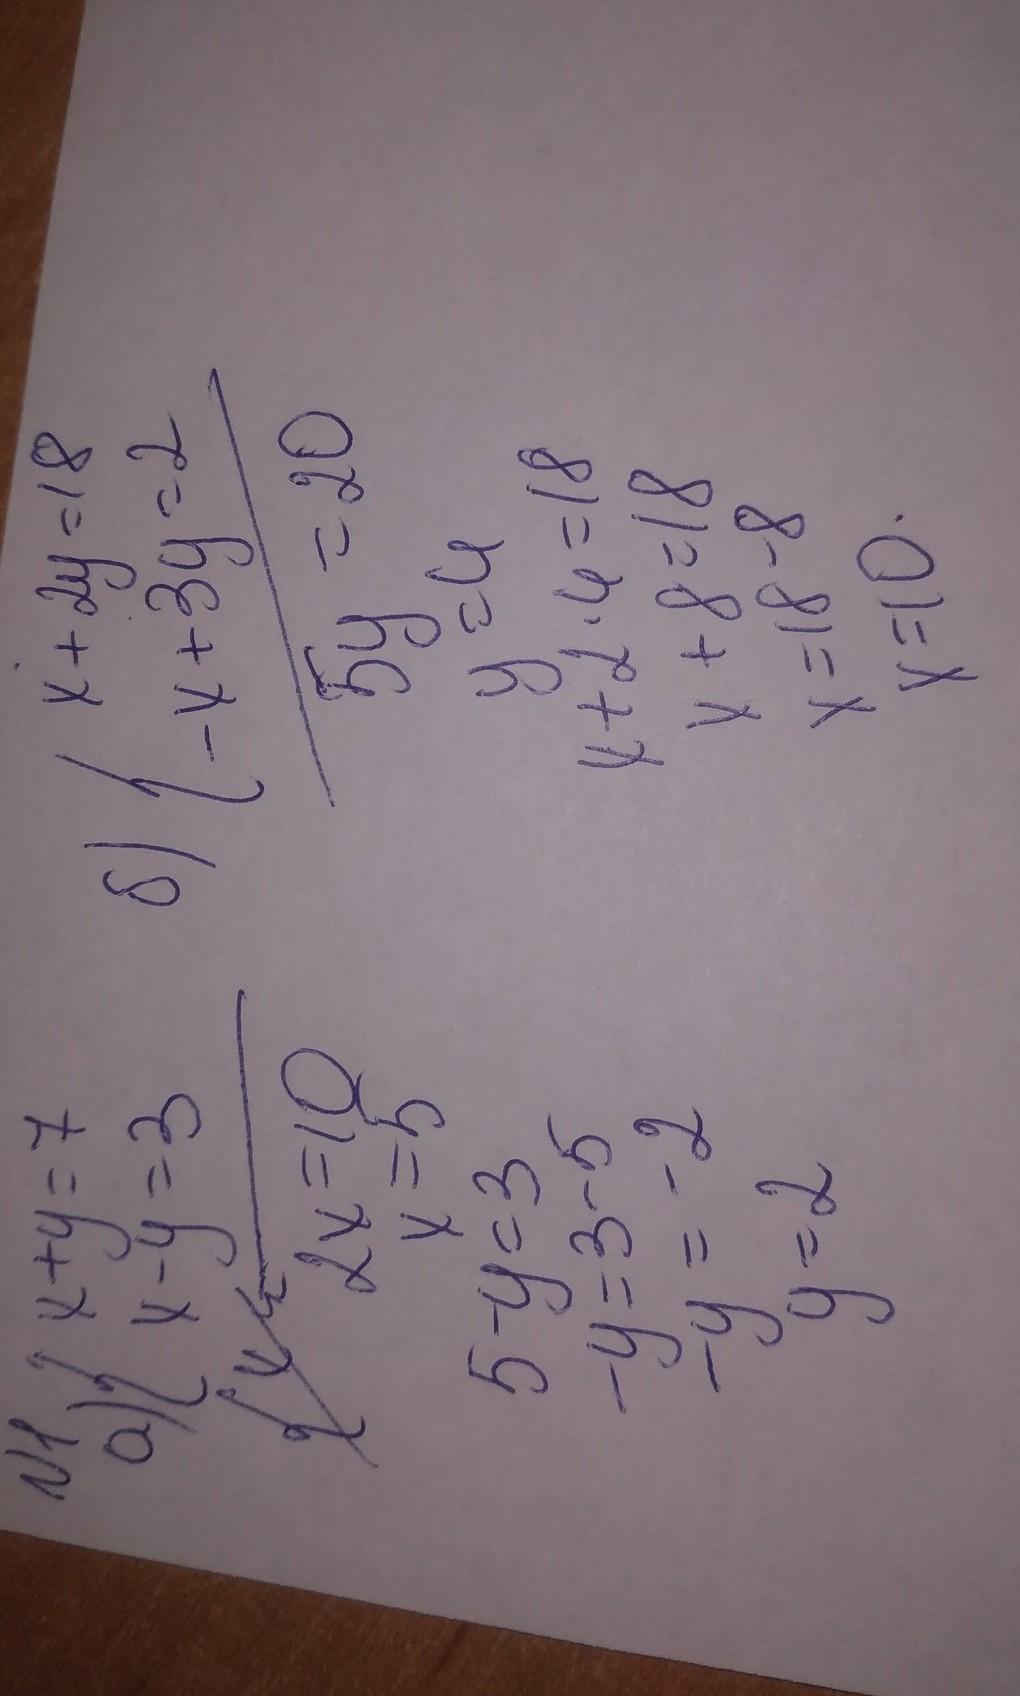 N1
а) { x+y=7
x-y=3
2x=10
x=5
5-y=3
-y=3-5
-y=-2
y=2
б) { x+2y=18
-x+3y=2
5y=20
y=4
x+2·4=18
x+8=18
x=18-8
x=10.